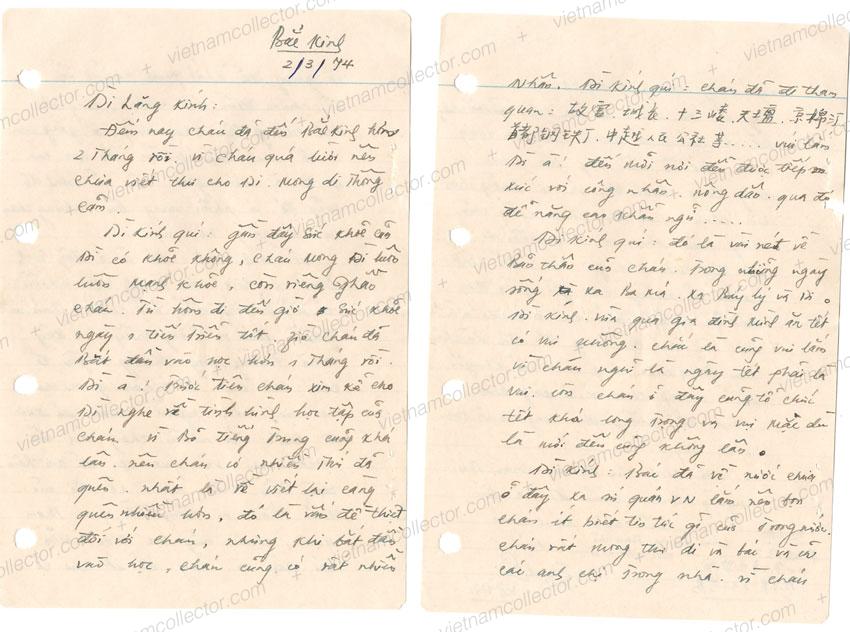 Bắc Kinh
2/3/74
Dì Lăng kính:
Đến nay cháu đã đến Bắc Kinh hơn
2 tháng rồi vì cháu quá lười nên
chưa viết thư cho Dì. Mong dì thông
cảm.
Dì kính quí: gần đây sức khoẻ của
Dì có khoẻ không, cháu mong Dì luôn
luôn mạnh khoẻ, còn riêng phần
cháu. Từ hôm đi đến giờ sức khoẻ
ngày 1 tiến triển tốt giờ cháu đã
Bắt đầu vào học hơn 1 tháng rồi.
Dì ạ! trước tiên cháu xin kể cho
Dì nghe về tình hình học tập của
cháu vì Bỏ tiếng Trung cũng khá
lâu nên cháu có nhiều thứ đã
quên. nhất là về viết lại càng
quên nhiều hơn, đó là vấn đề thiết
đối với cháu, nhưng khi bắt đầu
vào học, cháu cũng có rất nhiều
Dì kính quí: cháu đã đi tham
quan: 故宫 城长. 十三崚. 天坛. 京棉
中越人民公社等..... vui lắm
Dì ạ! đến mỗi nơi đều được tiếp
xúc với công nhân. nông dân. qua đó
để nâng cao khẩu ngữ.....
Dì kính quí: đó là vài nét về
Bản thân của cháu. Trong những ngày
sống xa Ba Má. xa Bác Lý và Dì.
Dì kính. vừa qua gia đình mình ăn tết
có vui không. chắc là cũng vui lắm
vì cháu nghĩ là ngày tết phải là
vui. còn cháu ở đây cũng tổ chức
tết khá long trọng và vui mặc dù
là mới đến cũng không lâu.
Dì kính: Bác đã về nước chưa
ở đây xa sứ quán VN lắm nên bọn
cháu ít biết tin tức gì của trong nước.
cháu rất mong thư dì và bác và các
các anh chị trong nhà. vì cháu
vietnamcollector.com